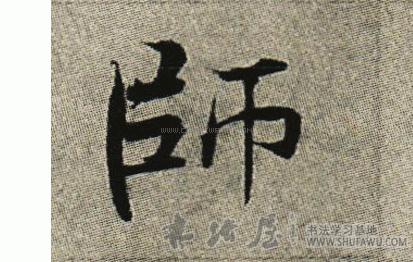 師
书法屋
书法学习基地
WWW.SHUFAWU.COM